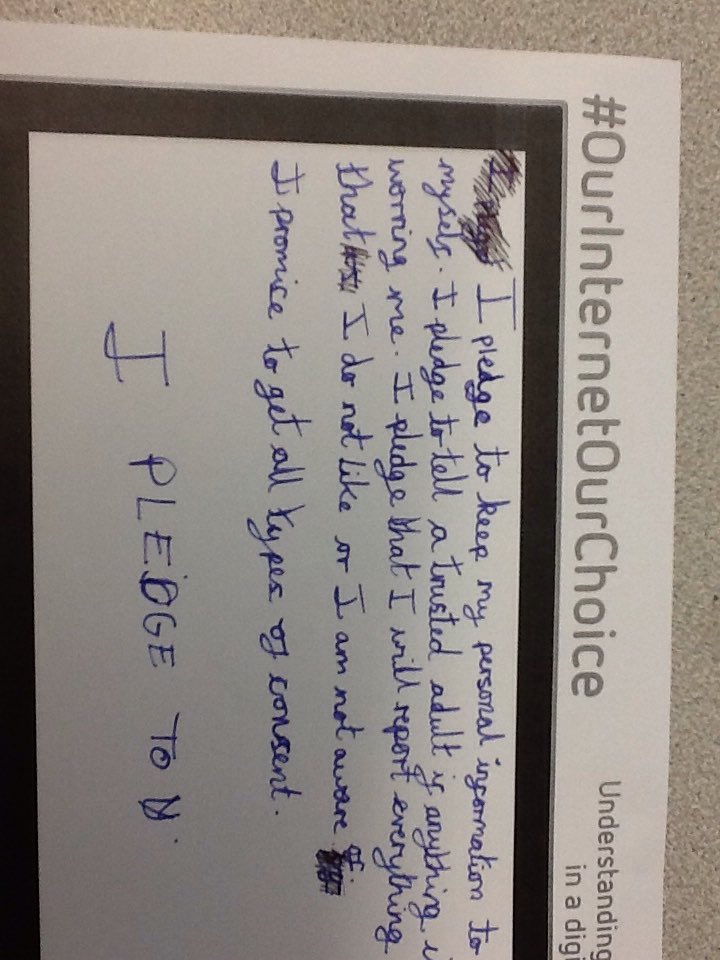 #OurInternetOurChoice
Understanding
in a digi
I pledge to keep my personal information to
myself. I pledge to tell a trusted adult if anything i
worring me. I pledge that I will report everything
that I do not like or I am not aware of
I promise to get all types of consent.
I PLEDGE TO